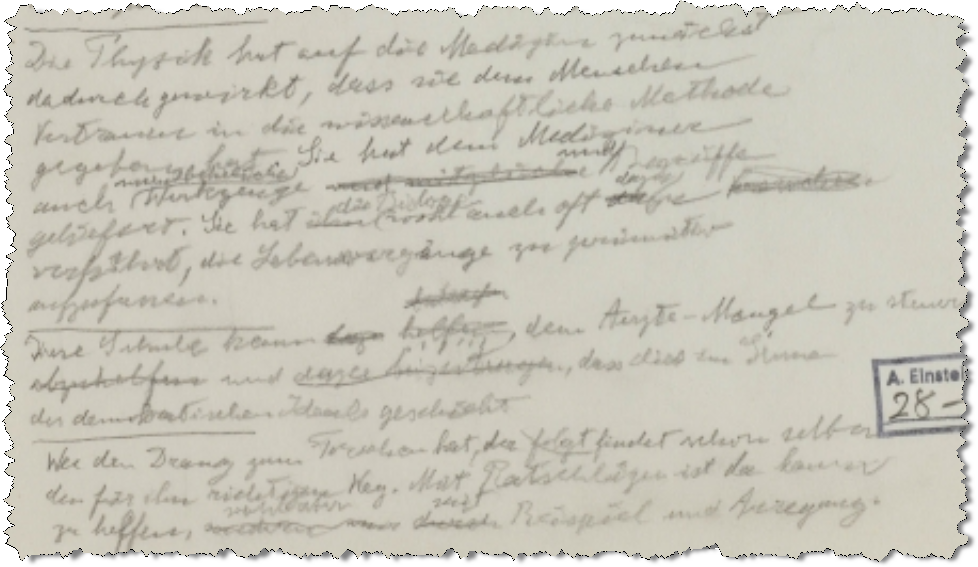 Die Physik hat auf die Medizin zunächst
dadurch gewirkt, dass sie dem Menschen
Vertrauen in die wissenschaftliche Methode
gegeben hat. Sie hat dem Mediziner
auch Werkzeuge und
geliefert. Sie hat die wohl auch oft dazu
verführt, die Lebensvorgänge zu primitiv
aufzufassen.
Diese Schule kann helfen, dem Aerzte-Mangel zu steuern
abzuhelfen und dazu beizutragen, dass dies im Sinne
des demokratischen Ideals geschieht
A. Einste
28-
Wer den Drang zum Forschen hat, der folgt findet schon selber
den für ihn richtigen Weg. Mit Ratschlägen ist da kaum
zu helfen, durch Beispiel und Anregung.